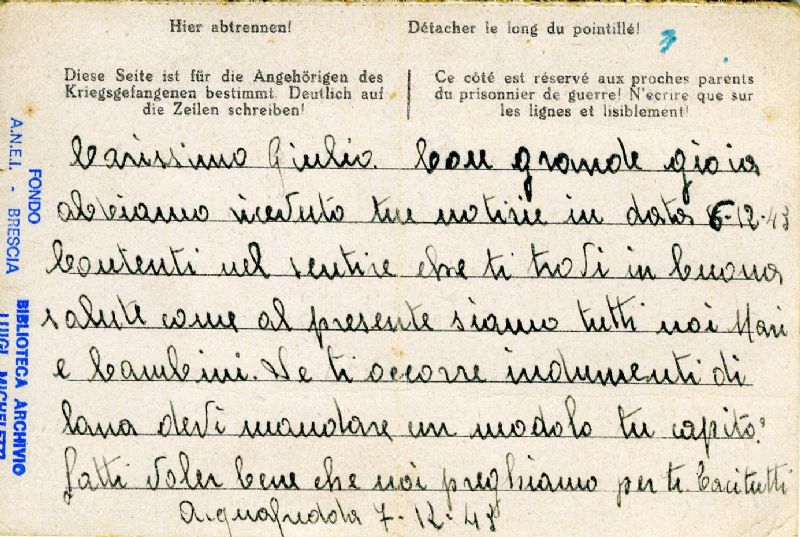 Hier abtrennen!
Détacher le long du pointillé!
Diese Seite ist für die Angehörigen des
Kriegsgefangenen bestimmt. Deutlich auf
die Zeilen schreiben!
Ce côté est réservé aux proches parents
du prisonnier de guerre! N'écrire que sur
les lignes et lisiblement!
Carissimo Giulio. Con grande gioia
abbiamo riceduto tue notizie in data 6-12-43
Contenti nel sentire che ti trovi in buona
salute come al presente siamo tutti noi Mari
e bambini. Se ti occorre indumenti di
lana devi mandare un modolo tu capito?
fatti voler bene che noi preghiamo per te. Baci tutti
Acquafredda 7-12-43
FONDO
A.N.E.I. - BRESCIA
BIBLIOTECA ARCHIVIO
LUIGI MICHELETTI